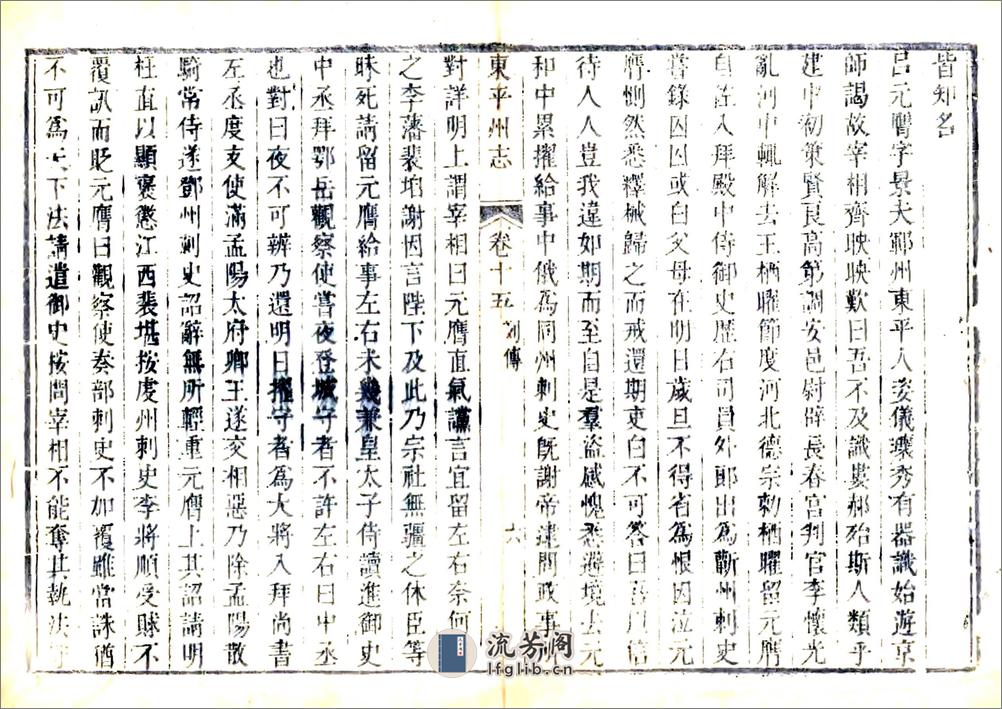 皆知名
呂元膺字景夫鄆州東平人姿儀瓌秀有器識始遊京
師謁故宰相齊映映歎曰吾不及識婁郝殆斯人類乎
建中初策賢良高第調安邑尉辟長春宮判官李懷光
亂河中輒解去王栖曜節度河北德宗勅栖曜留元膺
自佐入拜殿中侍御史歷右司員外郎出為蘄州刺史
嘗錄囚囚或白父母在明日歲旦不得省為恨因泣元
膺惻然悉釋械歸之而戒還期吏白不可答曰吾以信
待人人豈我違如期而至自是羣盜感愧悉避境去元
和中累擢給事中俄為同州刺史既謝帝逮問政事
東平州志
卷十五
列傳
六
對詳明上謂宰相曰元膺直氣讜言宜留左右奈何
之李藩裴垍謝因言陛下及此乃宗社無疆之休臣等
昧死請留元膺給事左右未幾兼皇太子侍讀進御史
中丞拜鄂岳觀察使嘗夜登城守者不許左右曰中丞
也對曰夜不可辨乃還明日擢守者為大將入拜尚書
左丞度支使潘孟陽太府卿王遂交相惡乃除孟陽散
騎常侍遂鄧州刺史詔辭無所輕重元膺上其詔請明
枉直以顯褒懲江西裴堪按虔州刺史李將順受賕不
覆訊而貶元膺曰觀察使奏部刺史不加覆雖當誅猶
不可為天下法請遣御史按問宰相不能奪其執法
流芳阁
lfglib.cn